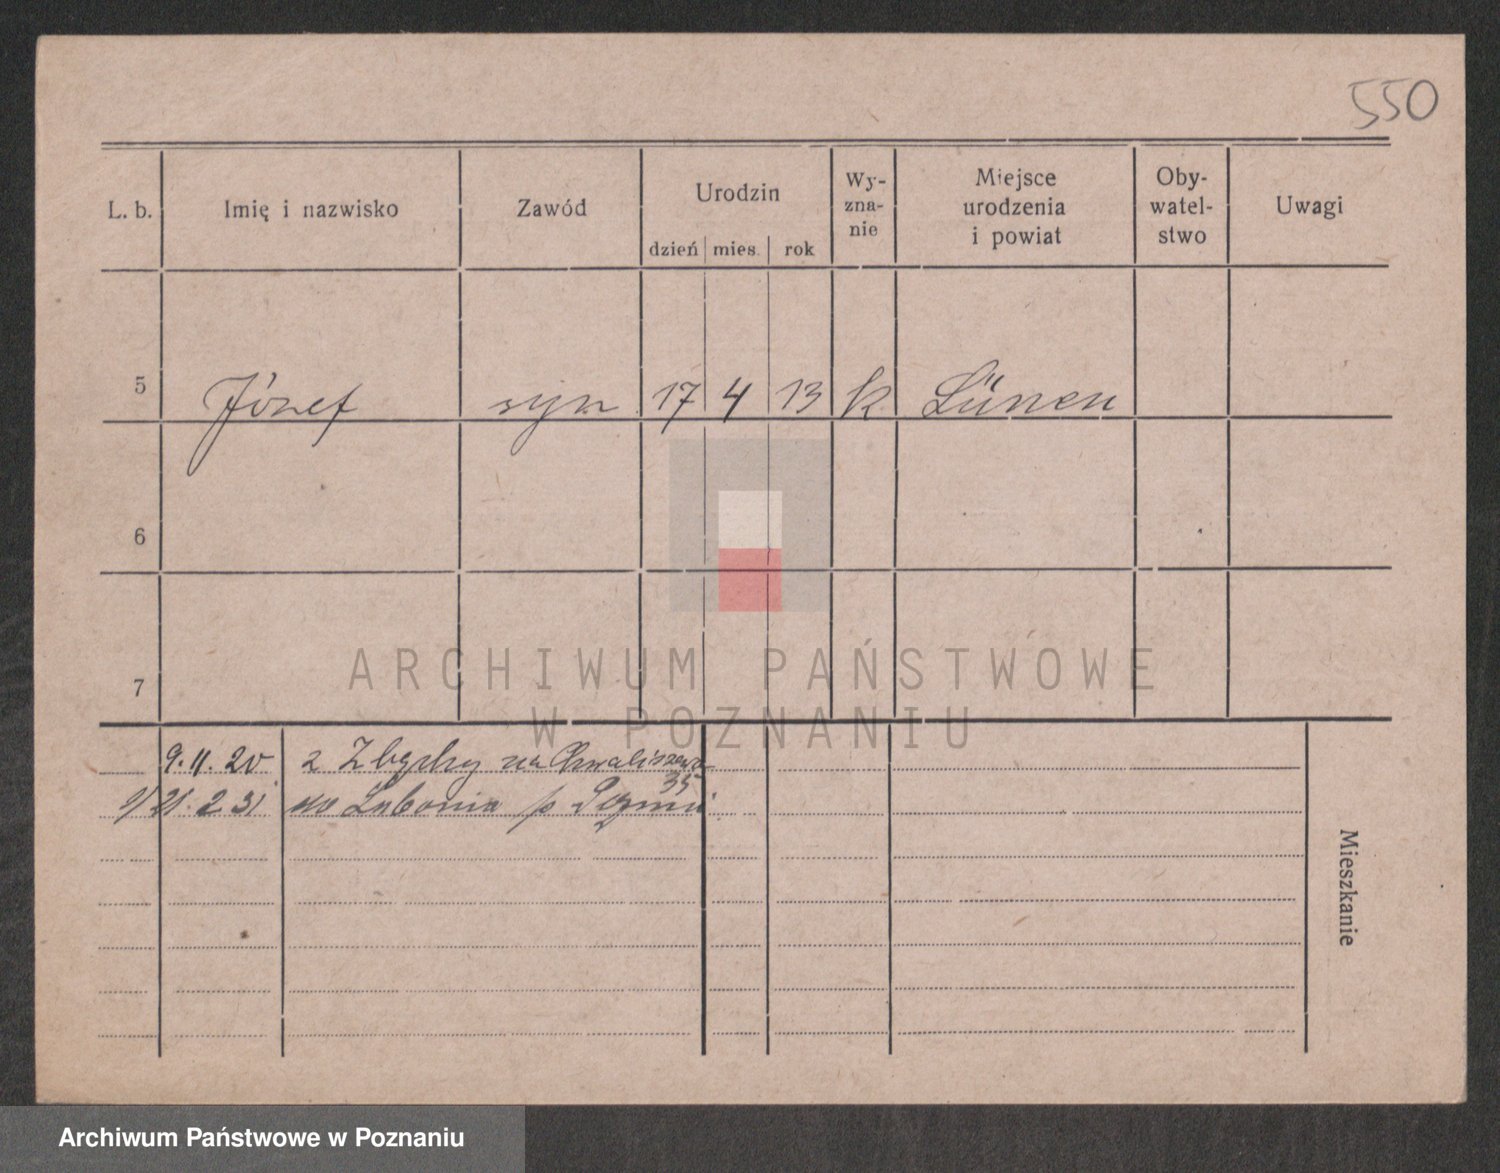 550
L. b. Imię i nazwisko Zawód Urodzin dzień mies. rok Wy-zna-nie Miejsce urodzenia i powiat Oby-watel-stwo Uwagi
5 Józef syn 17 4 13 k Lünen
6
7
ARCHIWUM PAŃSTWOWE
W POZNANIU
9. 11. 20 z na Chwaliszewo 35
21. 2 31 do Lubonia p
Mieszkanie
Archiwum Państwowe w Poznaniu